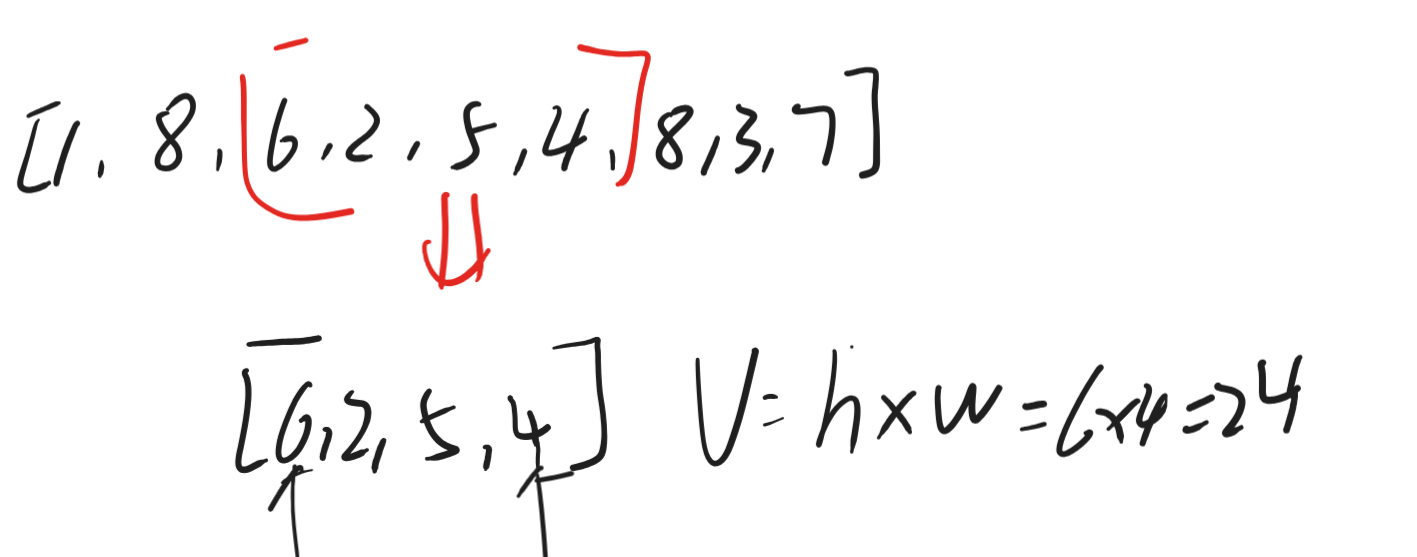 [1, 8, [6, 2, 5, 4,] 8, 3, 7]
[6, 2, 5, 4] V = h × w = 6×4 = 24